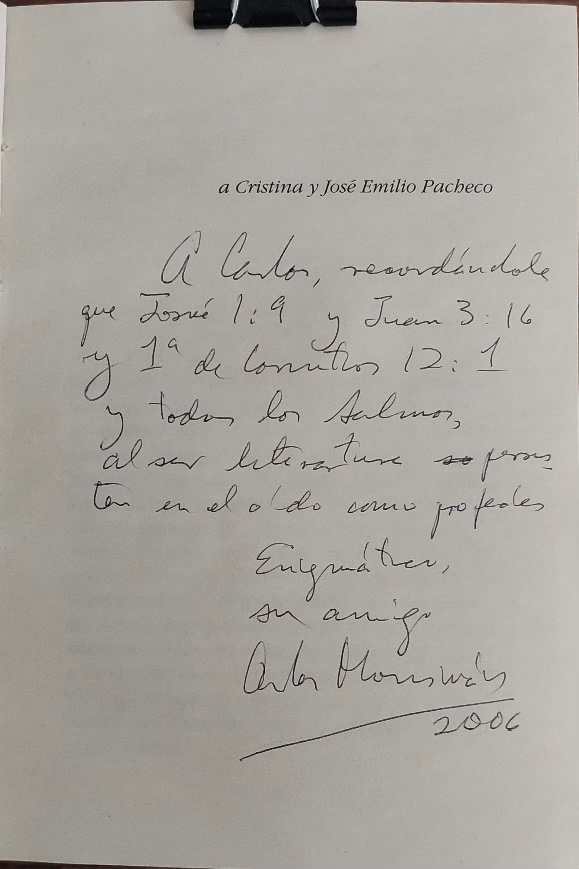 a Cristina y José Emilio Pacheco
A Carlos, recordándole
que Josué 1:9 y Juan 3:16
y 1ª de Corintios 12:1
y todos los Salmos,
al ser literatura persis
ten en el oído como profecías
Enigmáticas,
su amigo
Carlos Monsiváis
2006